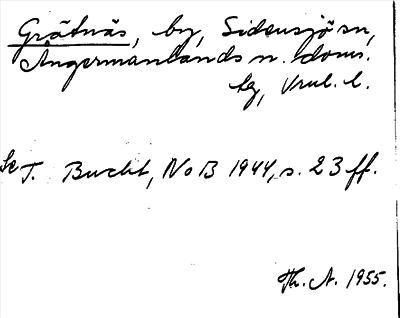 Grätnäs, by, Sidensjö sn,
Ångermanlands n. doms.
tg, Vnrl. l.
Se T. Bucht, NoB 1944, s. 23 ff.
Th. A. 1955.